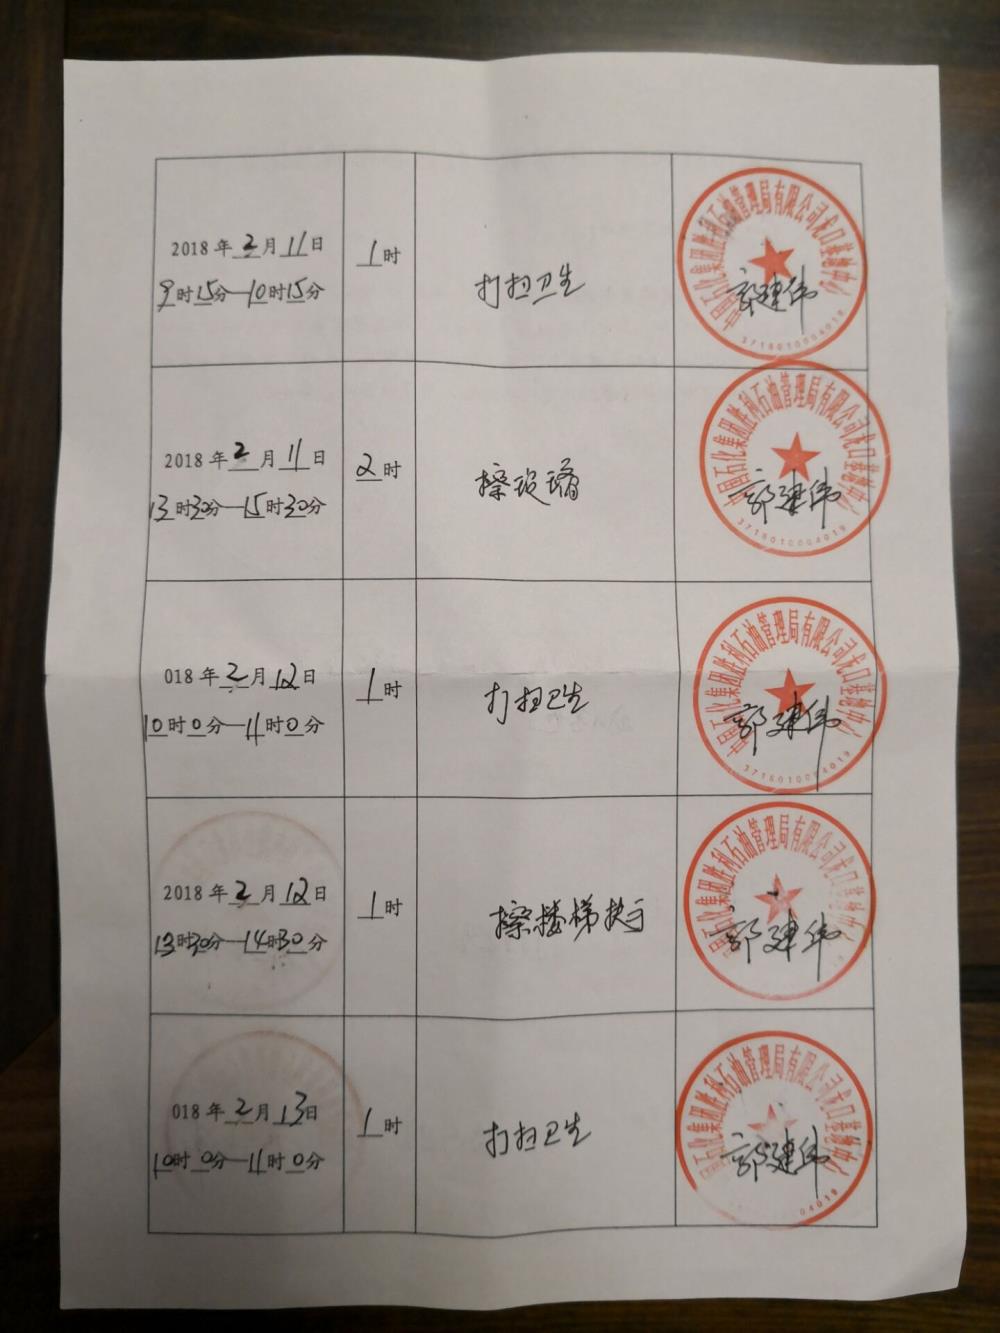 2018年2月11日
9时15分—10时15分
1时
打扫卫生
中国石化集团胜利石油管理局有限公司龙口基地中心
郭建伟
3718010004019
2018年2月11日
13时30分—15时30分
2时
擦玻璃
中国石化集团胜利石油管理局有限公司龙口基地中心
郭建伟
3718010004019
018年2月12日
10时0分—11时0分
1时
打扫卫生
中国石化集团胜利石油管理局有限公司龙口基地中心
郭建伟
3718010004019
2018年2月12日
13时30分—14时30分
1时
擦楼梯扶手
中国石化集团胜利石油管理局有限公司龙口基地中心
郭建伟
018年2月13日
10时0分—11时0分
1时
打扫卫生
石化集团胜利石油管理局有限公司龙口基地中心
郭建伟
04019